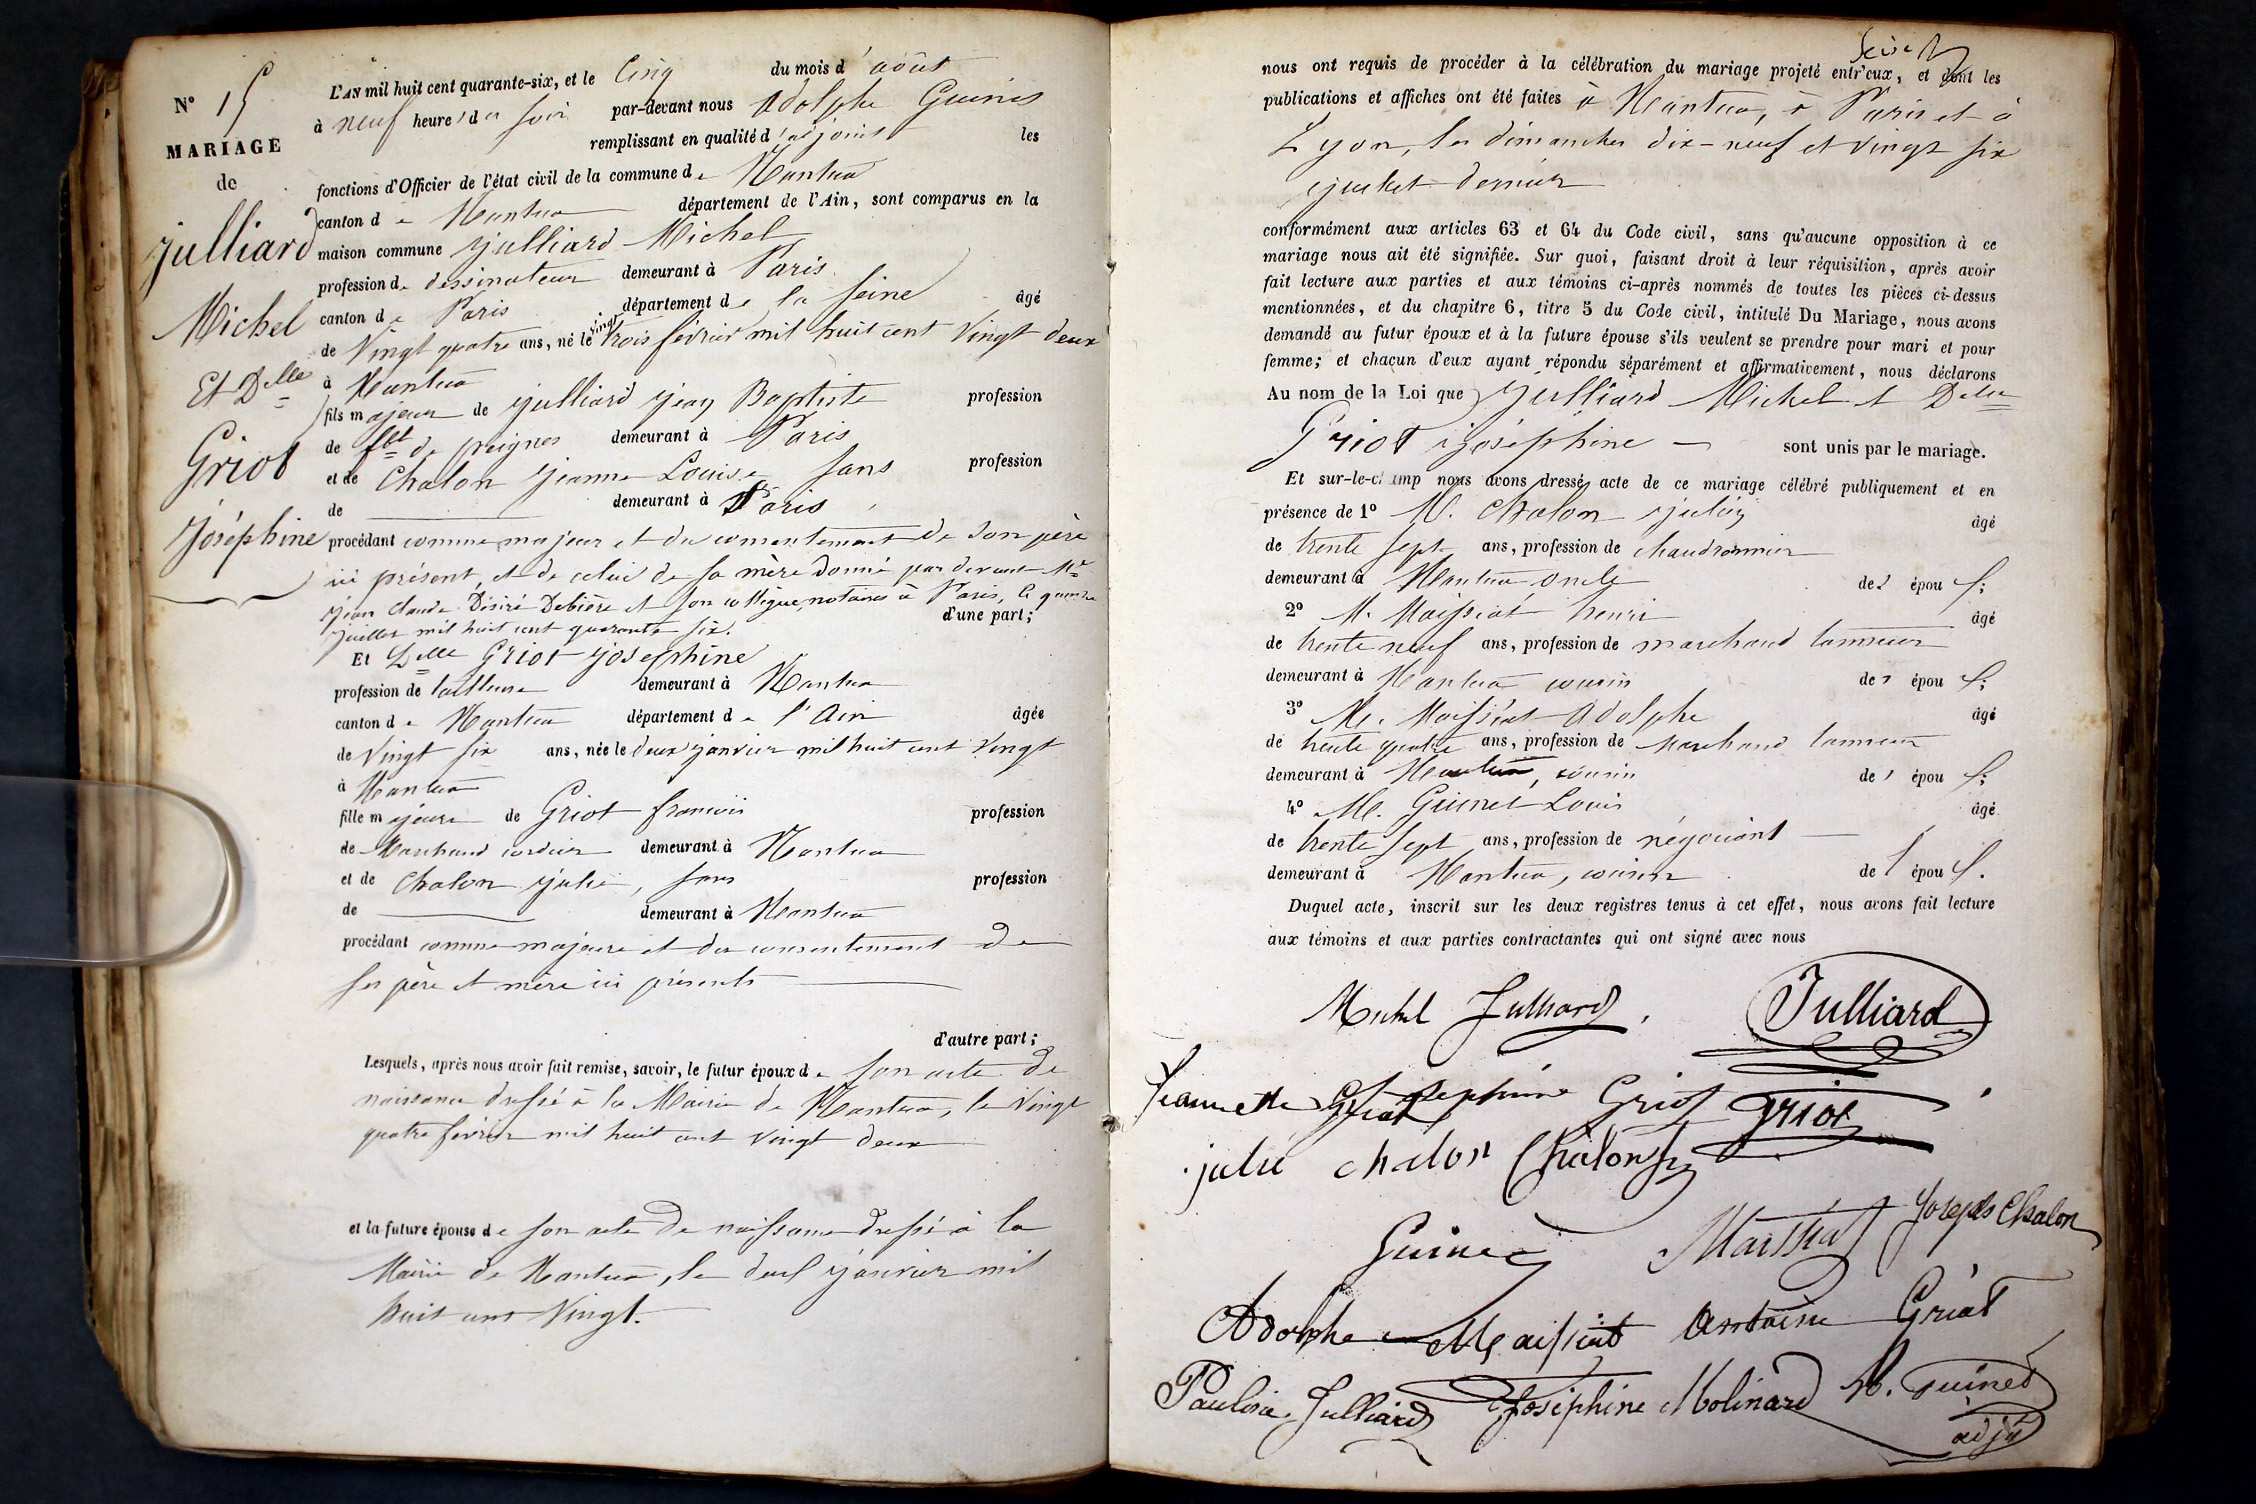 N° 15
MARIAGE
de
Julliard
Michel
Et Delle
Griot
Joséphine
L'AN mil huit cent quarante-six, et le Cinq du mois d'août
à neuf heures du soir par-devant nous Adolphe Guinet
remplissant en qualité d'adjoint les
fonctions d'Officier de l'état civil de la commune de Nantua
canton de Nantua département de l'Ain, sont comparus en la
maison commune Julliard Michel
profession de dessinateur demeurant à Paris
canton de Paris département de la Seine âgé
de Vingt quatre ans, né le vingt trois février mil huit cent Vingt deux
à Nantua
fils majeur de Julliard Jean Baptiste profession
de fbt de peignes demeurant à Paris
et de Chalon Jeanne Louise sans profession
de demeurant à Paris,
procédant comme majeur et du consentement de son père
ici présent, et de celui de sa mère donné par devant Me
Jean Claude Désiré Debière et son collègue notaires à Paris, le quinze
juillet mil huit cent quarante six. d'une part;
Et Delle Griot Joséphine
profession de tailleuse demeurant à Nantua
canton de Nantua département de l'Ain âgée
de Vingt six ans, née le deux janvier mil huit cent Vingt
à Nantua
fille majeure de Griot françois profession
de Marchand cordier demeurant à Nantua
et de Chalon Julie, sans profession
de demeurant à Nantua
procédant comme majeure et du consentement de
ses père et mère ici présents
d'autre part;
Lesquels, après nous avoir fait remise, savoir, le futur époux de son acte de
naissance dressé à la Mairie de Nantua, le Vingt
quatre février mil huit cent vingt deux
et la future épouse de son acte de naissance dressé à la
Mairie de Nantua, le deux janvier mil
huit cent Vingt.
nous ont requis de procéder à la célébration du mariage projeté entr'eux, et dont les
publications et affiches ont été faites à Nantua, à Paris et à
Lyon, les dimanches dix-neuf et vingt six
juillet dernier
conformément aux articles 63 et 64 du Code civil, sans qu'aucune opposition à ce
mariage nous ait été signifiée. Sur quoi, faisant droit à leur réquisition, après avoir
fait lecture aux parties et aux témoins ci-après nommés de toutes les pièces ci-dessus
mentionnées, et du chapitre 6, titre 5 du Code civil, intitulé Du Mariage, nous avons
demandé au futur époux et à la future épouse s'ils veulent se prendre pour mari et pour
femme; et chacun d'eux ayant répondu séparément et affirmativement, nous déclarons
Au nom de la Loi que Julliard Michel et Delle
Griot Joséphine sont unis par le mariage.
Et sur-le-champ nous avons dressé acte de ce mariage célébré publiquement et en
présence de 1° M. Chalon Julien âgé
de trente sept ans, profession de chaudronnier
demeurant à Nantua, oncle des époux;
2° M. Maissiat henri âgé
de trente neuf ans, profession de marchand tanneur
demeurant à Nantua cousin des époux;
3° M. Maissiat Adolphe âgé
de trente quatre ans, profession de Marchand tanneur
demeurant à Nantua, cousin des époux;
4° M. Guinet Louis âgé
de trente sept ans, profession de négociant
demeurant à Nantua, cousin des époux.
Duquel acte, inscrit sur les deux registres tenus à cet effet, nous avons fait lecture
aux témoins et aux parties contractantes qui ont signé avec nous
Michel Julliard. Julliard
Jeannette Griot Josephine Griot Griot
julie chalon Chalon
Guinet Maissiat Joseph Chalon
Adolphe Maissiat Antoine Griot
Pauline Julliard Joséphine Molinard A. Guinet
adjt